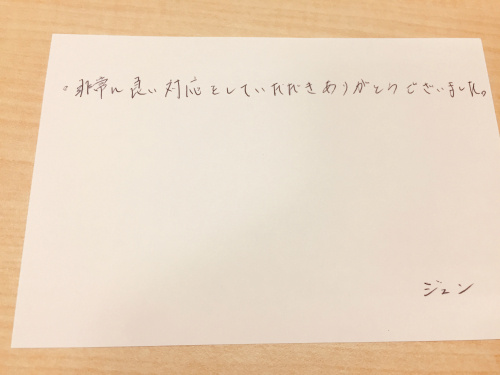 。非常に良い対応をしていただきありがとうございました。
ジェン